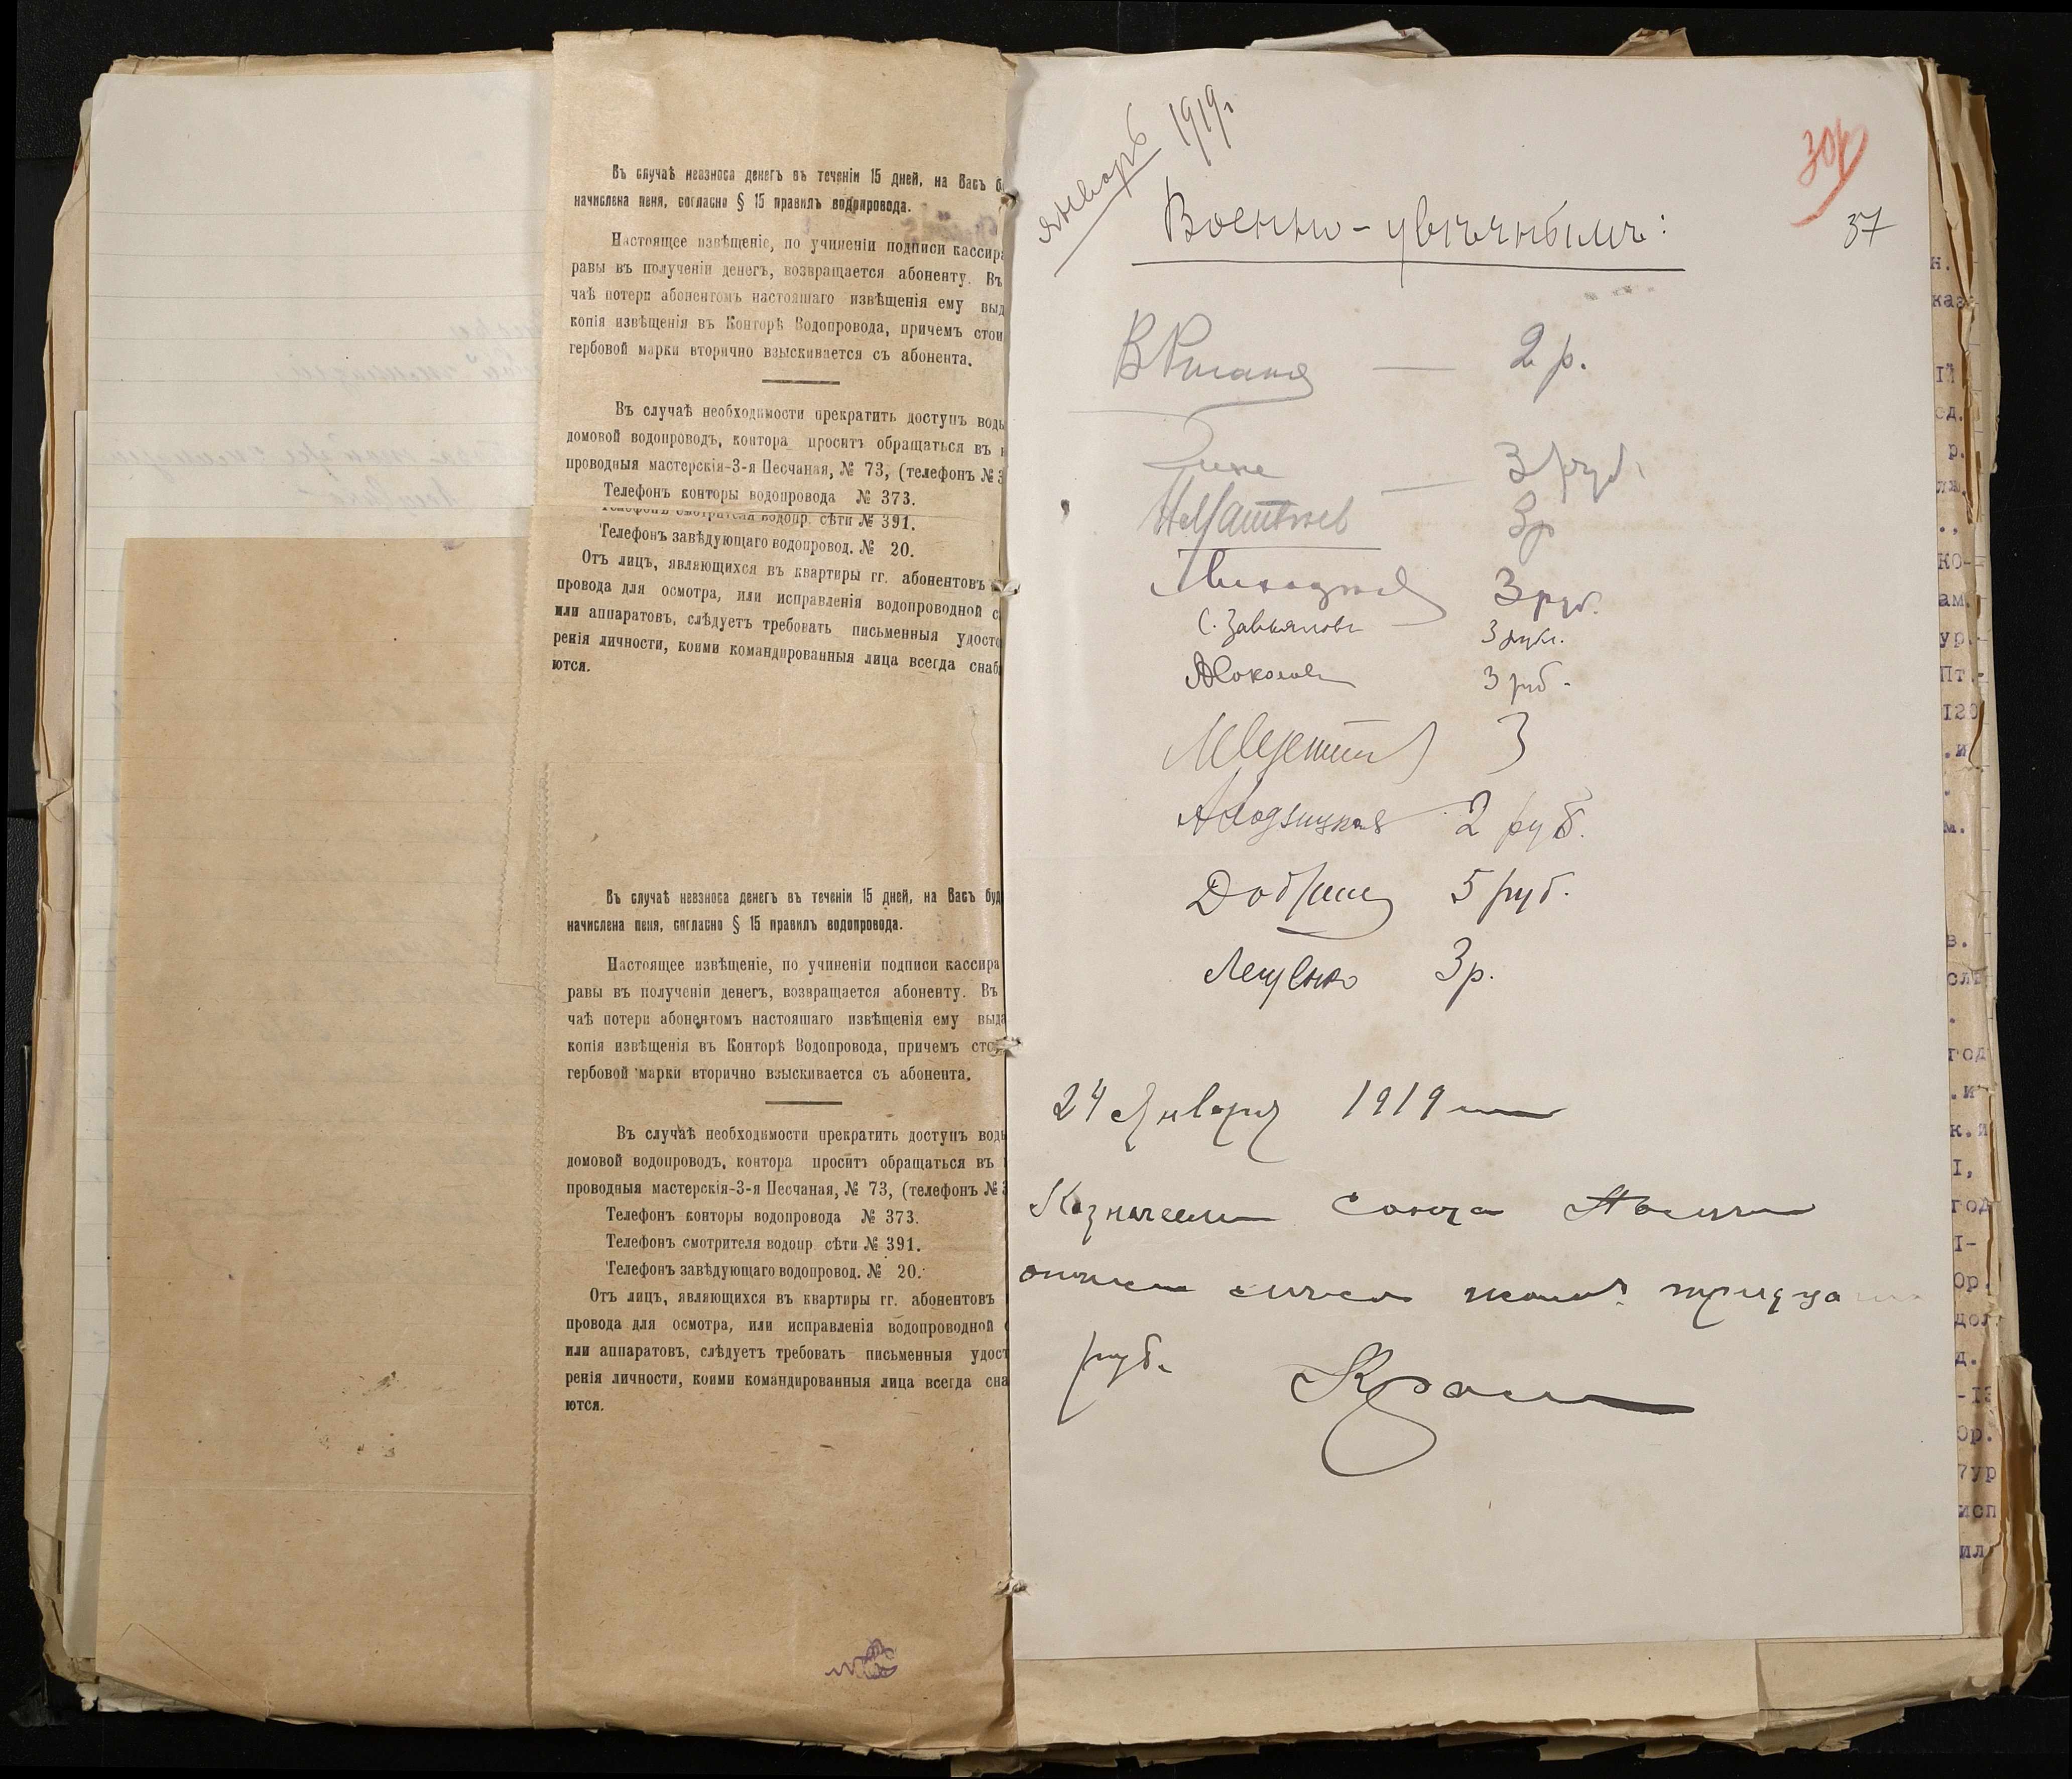 Въ случаѣ невзноса денегъ въ теченіи 15 дней, на Васъ б
начислена пеня, согласно § 15 правилъ водопровода.
Настоящее извѣщеніе, по учиненіи подписи кассира
равы въ полученіи денегъ, возвращается абоненту. Въ
чаѣ потери абонентомъ настоящаго извѣщенія ему выд
копія извѣщенія въ Конторѣ Водопровода, причемъ стои
гербовой марки вторично взыскивается съ абонента.
Въ случаѣ необходимости прекратить доступъ воды
домовой водопроводъ, контора проситъ обращаться въ
проводныя мастерскія-3-я Песчаная, № 73, (телефонъ № 3
Телефонъ конторы водопровода № 373.
Телефонъ смотрителя водопр. сѣти № 391.
Телефонъ завѣдующаго водопровод. № 20.
Отъ лицъ, являющихся въ квартиры гг. абонентовъ
провода для осмотра, или исправленія водопроводной с
или аппаратовъ, слѣдуетъ требовать письменныя удосто
ренія личности, коими командированныя лица всегда снаб
ются.
Въ случаѣ невзноса денегъ въ теченіи 15 дней, на Васъ буд
начислена пеня, согласно § 15 правилъ водопровода.
Настоящее извѣщеніе, по учиненіи подписи кассира
равы въ полученіи денегъ, возвращается абоненту. Въ
чаѣ потери абонентомъ настоящаго извѣщенія ему выда
копія извѣщенія въ Конторѣ Водопровода, причемъ сто
гербовой марки вторично взыскивается съ абонента.
Въ случаѣ необходимости прекратить доступъ воды
домовой водопроводъ, контора проситъ обращаться въ
проводныя мастерскія-3-я Песчаная, № 73, (телефонъ № 3
Телефонъ конторы водопровода № 373.
Телефонъ смотрителя водопр. сѣти № 391.
Телефонъ завѣдующаго водопровод. № 20.
Отъ лицъ, являющихся въ квартиры гг. абонентовъ
провода для осмотра, или исправленія водопроводной
или аппаратовъ, слѣдуетъ требовать письменныя удост
ренія личности, коими командированныя лица всегда сна
ются.
январь 1919 г
304
37
Военно-увѣчнымъ:
2 р.
3 руб.
3 р
3 руб.
С. Завьяловъ 3 рубл.
А Соколовъ 3 руб.
3
2 руб.
5 руб.
3 р.
24 Января 1919
Казначеемъ Союза
тридца
руб.